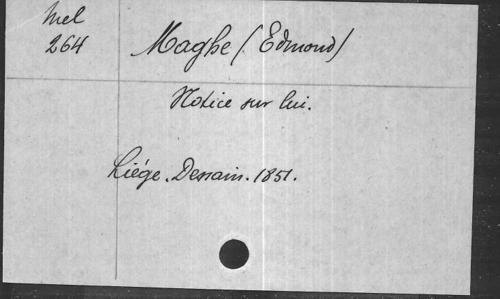 Mel
264
Maghe (Edmond)
Notice sur lui.
Liége. Dessain. 1851.